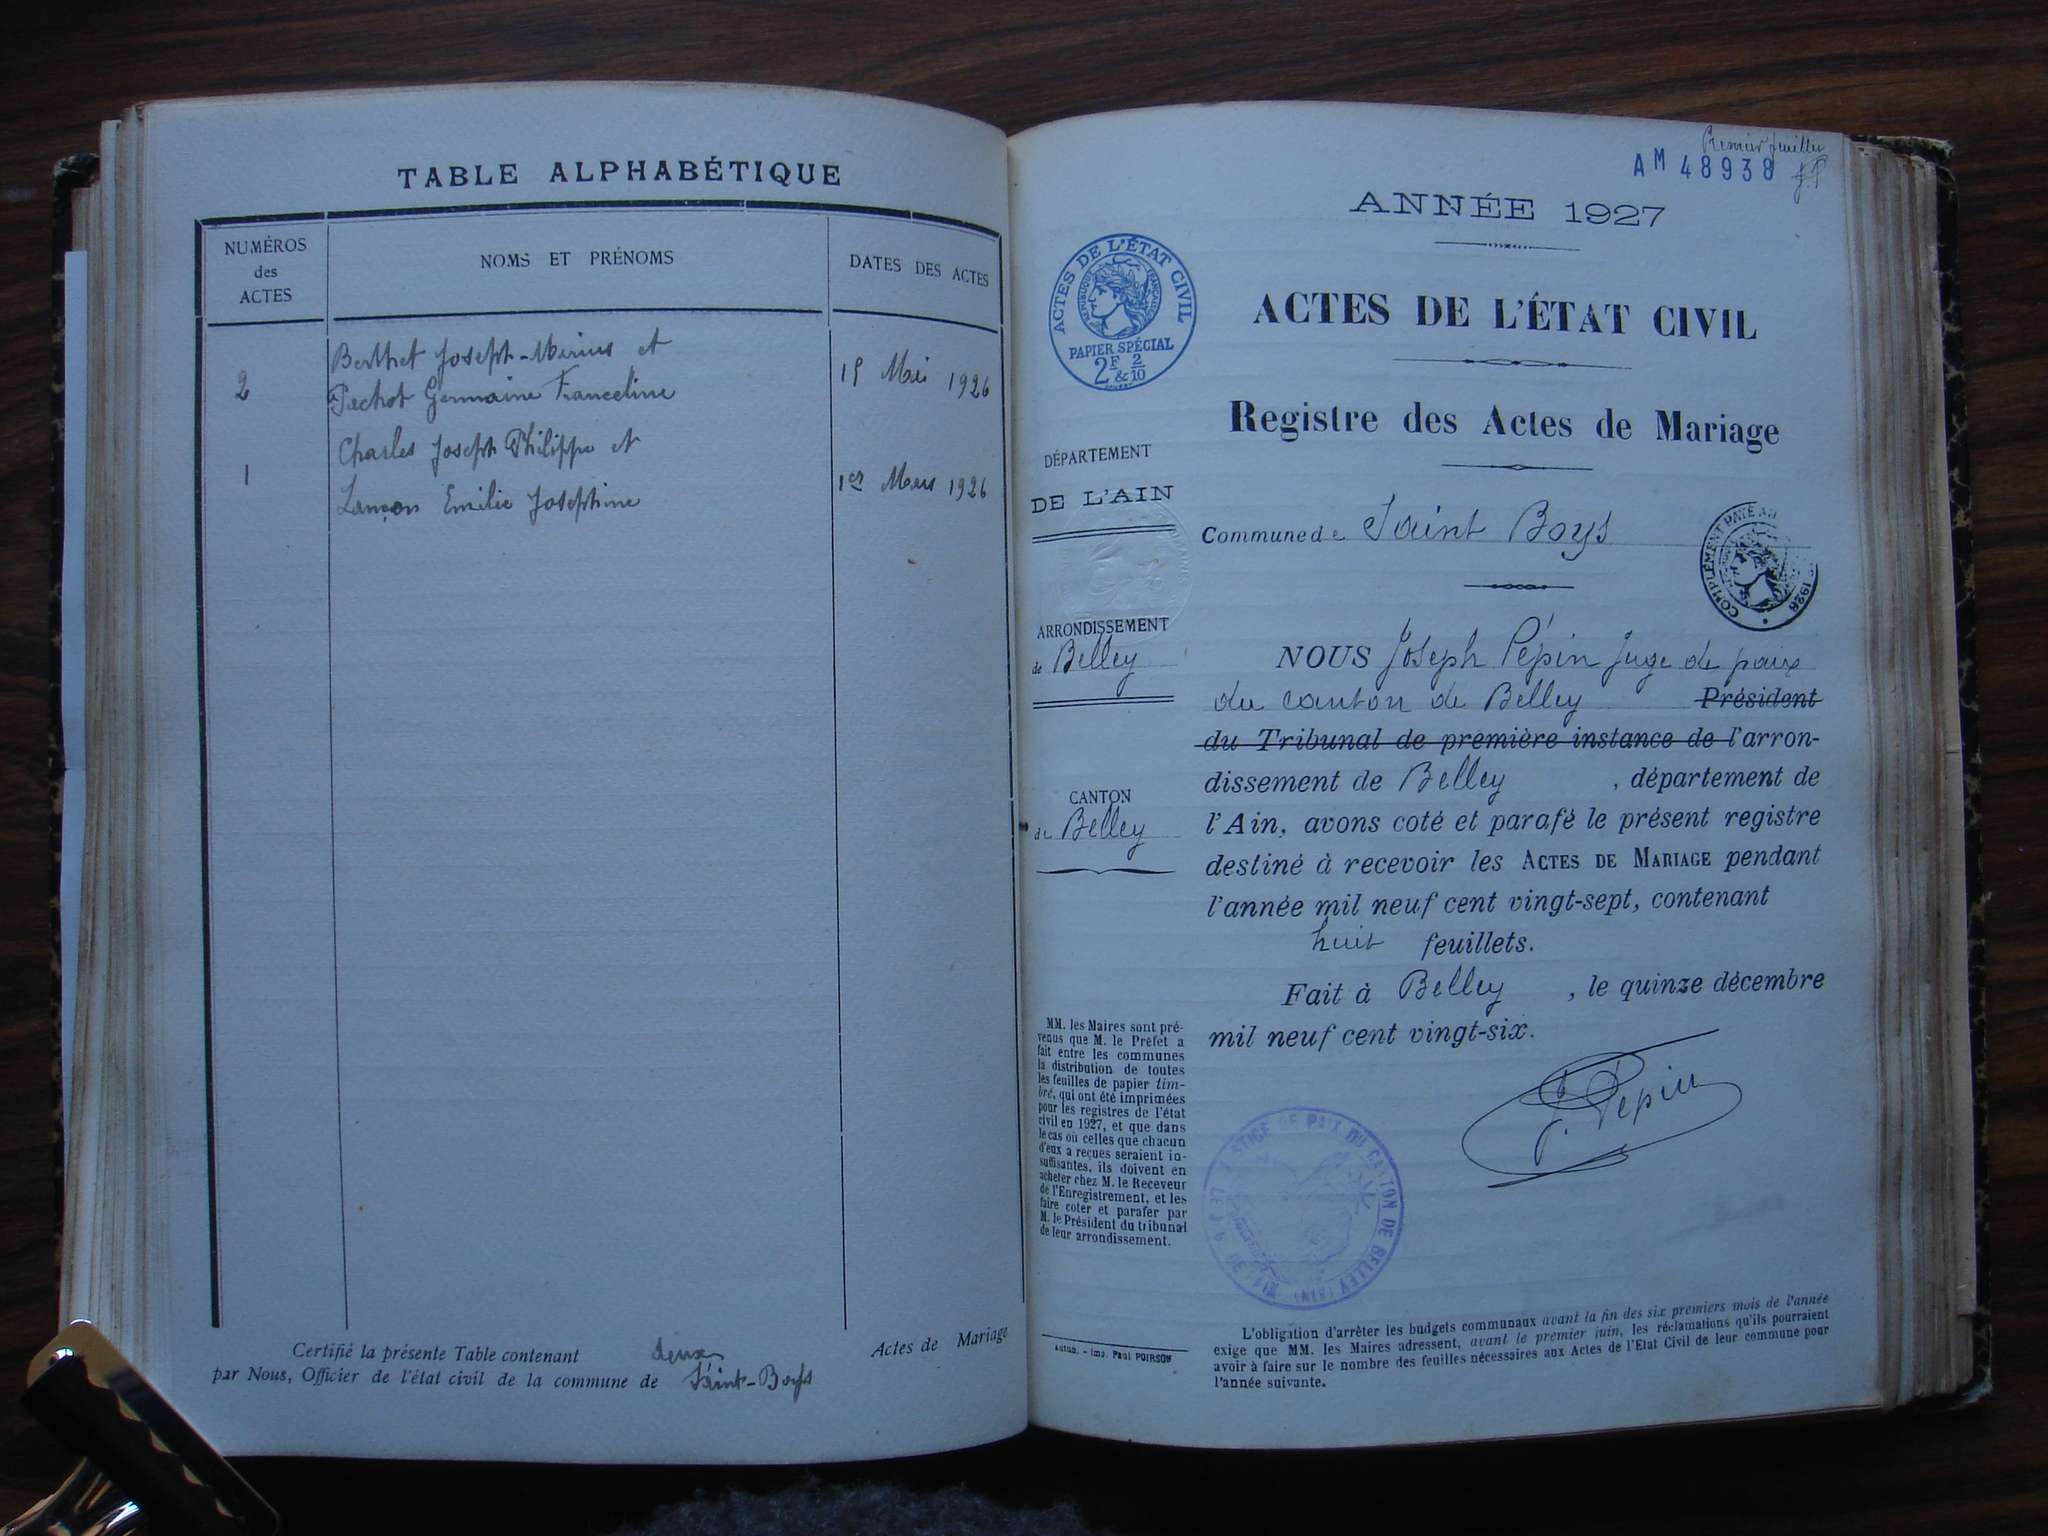 TABLE ALPHABÉTIQUE
NUMÉROS
des
ACTES
NOMS ET PRÉNOMS
DATES DES ACTES
Berthet Joseph-Marius et
2
Pachot Germaine Franceline
15 Mai 1926
Charles Joseph Philippe et
1
Lançon Emilie Josephine
1er Mars 1926
Certifié la présente Table contenant deux Actes de Mariage
par Nous, Officier de l'état civil de la commune de Saint-Boys
Premier feuillet
AM 48938
J.P
ANNÉE 1927
ACTES DE L'ÉTAT CIVIL
RÉPUBLIQUE FRANÇAISE
PAPIER SPÉCIAL
2F & 2/10
ACTES DE L'ÉTAT CIVIL
Registre des Actes de Mariage
DÉPARTEMENT
DE L'AIN
Commune de Saint Boys
COMPLÉMENT PAYÉ 1926
ARRONDISSEMENT
de Belley
CANTON
de Belley
NOUS Joseph Pépin Juge de paix
du canton de Belley Président
du Tribunal de première instance de l'arron-
dissement de Belley, département de
l'Ain, avons coté et parafé le présent registre
destiné à recevoir les ACTES DE MARIAGE pendant
l'année mil neuf cent vingt-sept, contenant
huit feuillets.
Fait à Belley, le quinze décembre
mil neuf cent vingt-six.
J. Pépin
JUSTICE DE PAIX DU CANTON DE BELLEY (AIN)
MM. les Maires sont pré-
venus que M. le Préfet a
fait entre les communes
la distribution de toutes
les feuilles de papier tim-
bré, qui ont été imprimées
pour les registres de l'état
civil en 1927, et que dans
le cas où celles que chacun
d'eux a reçues seraient in-
suffisantes, ils doivent en
acheter chez M. le Receveur
de l'Enregistrement, et les
faire coter et parafer par
M. le Président du tribunal
de leur arrondissement.
Autun. - Imp. Paul POIRSON
L'obligation d'arrêter les budgets communaux avant la fin des six premiers mois de l'année
exige que MM. les Maires adressent, avant le premier juin, les réclamations qu'ils pourraient
avoir à faire sur le nombre des feuilles nécessaires aux Actes de l'Etat Civil de leur commune pour
l'année suivante.